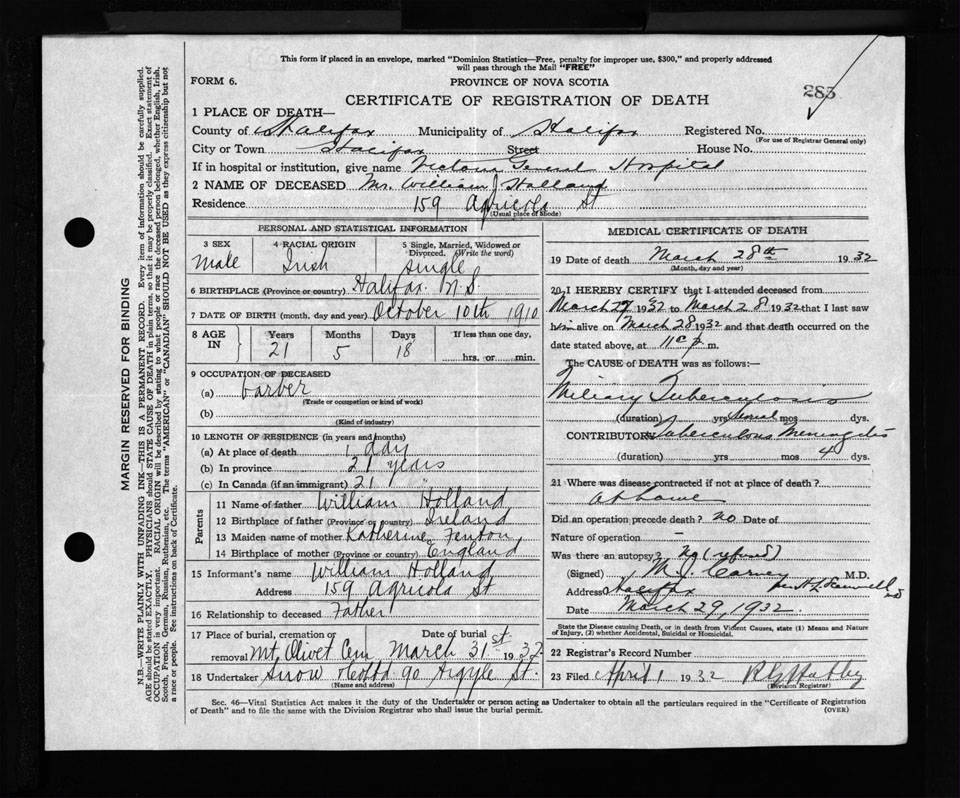 This form if placed in an envelope, marked "Dominion Statistics—Free, penalty for improper use, $300," and properly addressed
will pass through the Mail "FREE"
FORM 6. PROVINCE OF NOVA SCOTIA
283
CERTIFICATE OF REGISTRATION OF DEATH
1 PLACE OF DEATH—
County of Halifax Municipality of Halifax Registered No.
(For use of Registrar General only)
City or Town Halifax Street House No.
If in hospital or institution, give name Victoria General Hospital
2 NAME OF DECEASED Mr. William J Holland
Residence 159 Agricola St
(Usual place of abode)
PERSONAL AND STATISTICAL INFORMATION
3 SEX 4 RACIAL ORIGIN 5 Single, Married, Widowed or
Divorced. (Write the word)
Male Irish single
6 BIRTHPLACE (Province or country) Halifax N.S.
7 DATE OF BIRTH (month, day and year) October 10th 1910
8 AGE IN Years Months Days If less than one day,
21 5 18 hrs. or min.
9 OCCUPATION OF DECEASED
(a) barber
(Trade or occupation or kind of work)
(b)
(Kind of industry)
10 LENGTH OF RESIDENCE (in years and months)
(a) At place of death 1 day
(b) In province 21 years
(c) In Canada (if an immigrant) 21 "
Parents
11 Name of father William Holland
12 Birthplace of father (Province or country) Ireland
13 Maiden name of mother Katherine Fenton
14 Birthplace of mother (Province or country) England
15 Informant's name William Holland
Address 159 Agricola St
16 Relationship to deceased Father
17 Place of burial, cremation or Date of burial
removal Mt Olivet Cem March 31st 1932
18 Undertaker Snow Co Ltd 90 Argyle St.
(Name and address)
MEDICAL CERTIFICATE OF DEATH
19 Date of death March 28th 1932
(Month, day and year)
20 I HEREBY CERTIFY that I attended deceased from
March 27 1932 to March 28 1932 that I last saw
him alive on March 28 1932 and that death occurred on the
date stated above, at 11 p m.
The CAUSE of DEATH was as follows:
Miliary Tuberculosis
(duration) yrs mos dys.
CONTRIBUTORY Tuberculous Meningitis
(duration) yrs mos 4 dys.
21 Where was disease contracted if not at place of death?
at home
Did an operation precede death? no Date of
Nature of operation —
Was there an autopsy? No (refused)
(Signed) M. J. Carney M.D.
Address Halifax
Date March 29, 1932.
State the Disease causing Death, or in death from Violent Causes, state (1) Means and Nature
of Injury, (2) whether Accidental, Suicidal or Homicidal.
22 Registrar's Record Number
23 Filed April 1 1932
(Division Registrar)
Sec. 46—Vital Statistics Act makes it the duty of the Undertaker or person acting as Undertaker to obtain all the particulars required in the "Certificate of Registration
of Death" and to file the same with the Division Registrar who shall issue the burial permit. (OVER)
MARGIN RESERVED FOR BINDING
N.B.—WRITE PLAINLY WITH UNFADING INK—THIS IS A PERMANENT RECORD. Every item of information should be carefully supplied.
AGE should be stated EXACTLY. PHYSICIANS should STATE CAUSE OF DEATH in plain terms, so that it may be properly classified. Exact statement of
OCCUPATION is very important. RACIAL ORIGIN will be described by stating to what people or race the deceased person belonged, whether English, Irish,
Scotch, French, German, Russian, Ruthenian, etc. The terms "AMERICAN" or "CANADIAN" SHOULD NOT BE USED as they express citizenship but not
a race or people. See instructions on back of Certificate.